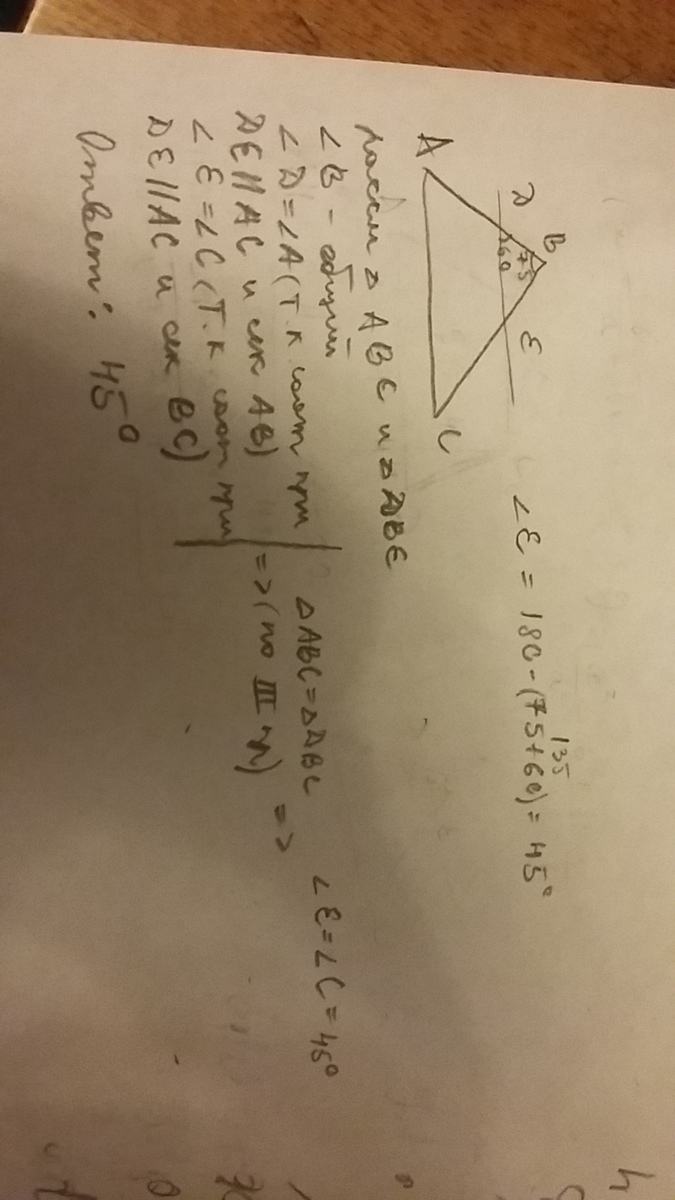 B
D
75
60
E
A
C
∠E = 180-(75+60) = 45°
135
ΔABC и ΔDBE
∠B - общий
∠D = ∠A (т.к соот при
DE || AC и сек AB)
∠E = ∠C (т.к соот при
DE || AC и сек BC)
ΔABC = ΔDBC
=> (по III пр) =>
∠E = ∠C = 45°
Ответ: 45°